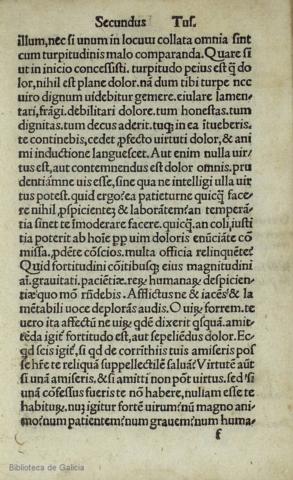 Secundus Tus.
illum, nec si unum in locuʒ collata omnia sint
cum turpitudinis malo comparanda. Quare si
ut in inicio concessisti. turpitudo peius est q̃ do
lor, nihil est plane dolor. nã dum tibi turpe nec
uiro dignum uidebitur gemere. eiulare lamen⸗
tari, frãgi. debilitari dolore. tum honestas. tum
dignitas. tum decus aderit. tuqʒ in ea ĩtueberis.
te continebis, cedet ꝓfecto virtuti dolor, & ani
mi inductione languescet. Aut enim nulla uir⸗
tus est, aut contemnendus est dolor omnis. pru
dentiãmne uis esse, sine qua ne intelligi ulla uir
tus potest. quid ergo? ea patieturne quicq̃ face⸗
re nihil ꝓspicientẽ & laborãtem? an temperã⸗
tia sinet te ĩmoderare facere. quicq̃. an coli, iusti
tia poterit ab hoĩe ꝑꝑ uim doloris enũciãte cõ
missa, ꝓdẽte cõscios. multa officia relinquẽte?
Quid fortitudini cõitibusqʒ eius magnitudini
aĩ. grauitati. paciẽtiæ. reꝝ humanaꝝ despicien⸗
tiæ quo mõ rñdebis. Afflictus ne & iacẽs? & la
mẽtabili uoce deplorãs audis. O uiꝝ forrem. te
uero ita affectũ ne uiꝝ qdẽ dixerit qsquã. amit⸗
tẽda igiť fortitudo est, aut sepeliẽdus dolor. Ec⸗
qd scis igiť, si qd de corrithiis tuis amiseris pos
se hr̃e te reliquã suppellectilẽ saluã? Virtutẽ aũt
si unã amiseris, & si amitti non põt uirtus. sed si
unã cõfessus fueris te nõ habere, nullam esse te
habituꝝ. nuʒ igitur fortẽ virum? nũ magno ani⸗
mo? num patientem? num grauem? num huma⸗
f
Biblioteca de Galicia